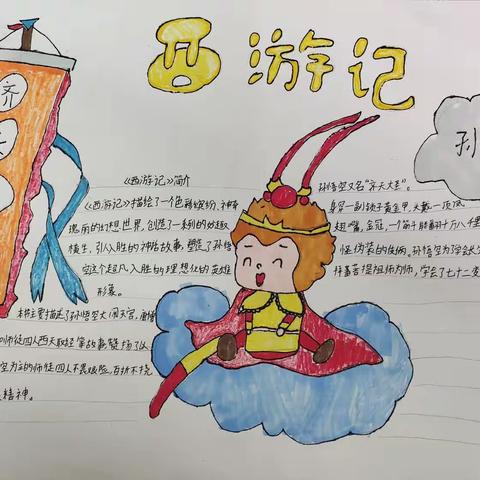 西游记
齐
天
孙
《西游记》简介
《西游记》描绘了一个色彩缤纷、神奇
瑰丽的幻想世界,创造了一系列的妙趣
横生,引人入胜的神话故事,塑造了孙悟
空这个超凡入胜的理想化的英雄
形象。
本书主要描述了孙悟空大闹天宫,唐僧
师徒四人西天取经等故事赞扬了以
空为主的师徒四人不畏艰险,百折不挠
精神。
孙悟空又名"齐天大圣"。
身穿一副锁子黄金甲,头戴一顶凤
翅 金冠,一个筋斗能翻十万八千里
怪伪装的 孙悟空为学会长生
拜菩提祖师为师,学会了七十二变